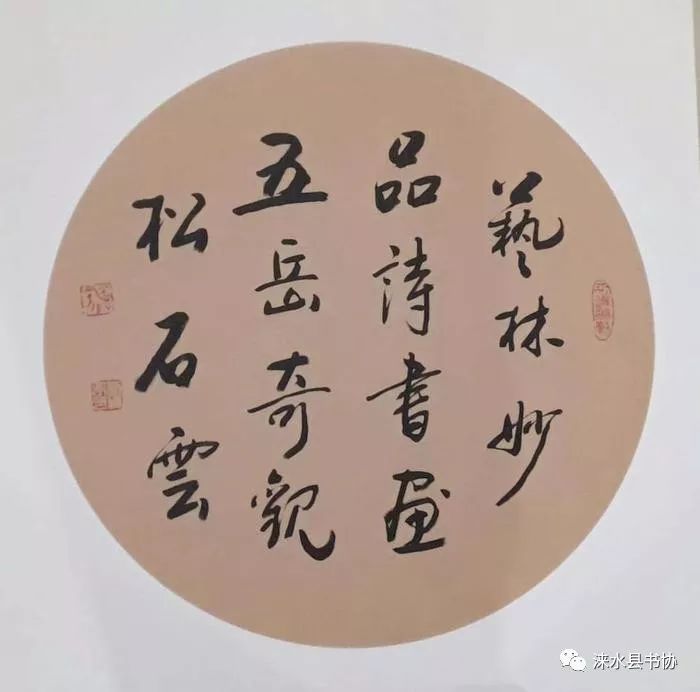 藝林妙
品詩書畫
五岳奇觀
松石雲
涞水县书协